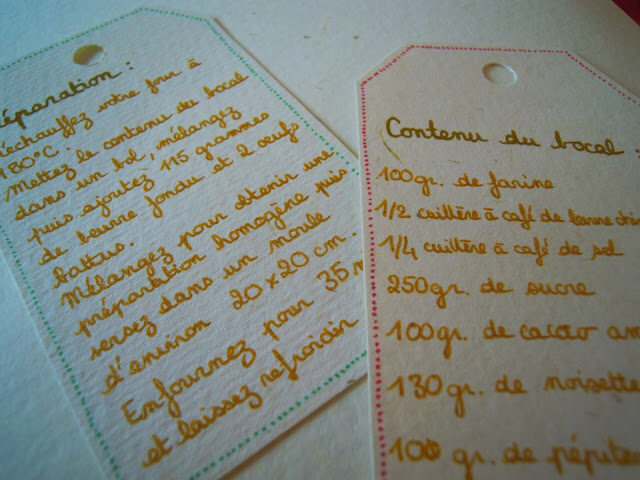 éparation :
échauffez votre four à
180°C.
Mettez le contenu du bocal
dans un bol, mélangez
puis ajoutez 115 grammes
de beurre fondu et 2 oeufs
battus.
Mélangez pour obtenir une
préparation homogène puis
versez dans un moule
d'environ 20x20 cm.
Enfournez pour 35 m
et laissez refroidir
Contenu du bocal :
100gr. de farine
1/2 cuillère à café de levure chi
1/4 cuillère à café de sel
250gr. de sucre
100gr. de cacao am
130gr. de noisette
100 gr. de pépite